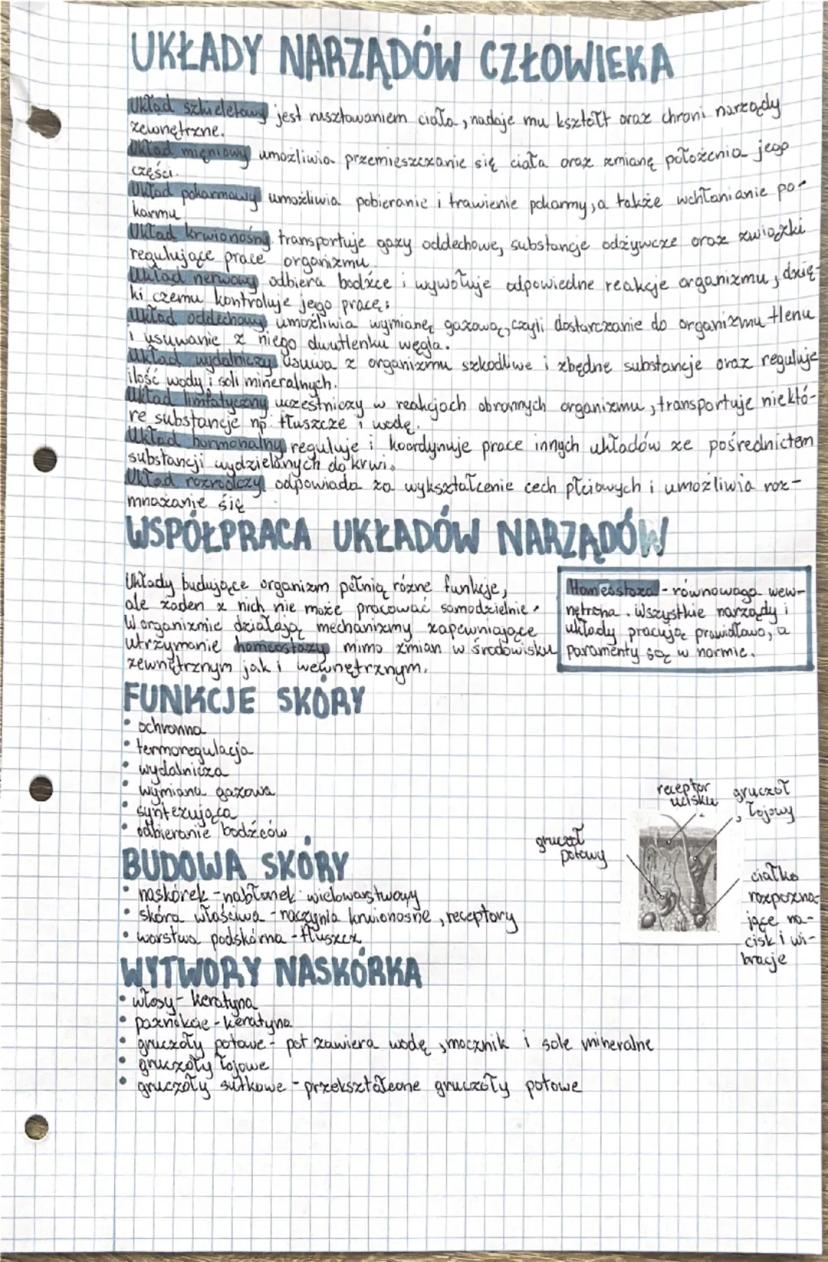 UKŁADY NARZĄDÓW CZŁOWIEKA
Układ szkieletowy jest rusztowaniem ciała, nadaje mu kształt oraz chroni narządy
zewnętrzne.
Układ mięniowy umożliwia przemieszczanie się ciała oraz zmianę położenia jego
części.
Układ pokarmowy umożliwia pobieranie i trawienie pokarmy, a także wchłanianie po-
karmu
Układ krwionośny transportuje gazy oddechowe, substancje odżywcze oraz związki
regulujące prace organizmu.
Układ nerwowy odbiera bodźce i wywołuje odpowiedne reakcje organizmu, dzię-
ki czemu kontroluje jego pracę.
Układ oddechowy umożliwia wymianę gazową, czyli dostarczanie do organizmu tlenu
i usuwanie z niego dwutlenku węgla.
Układ wydalniczy usuwa z organizmu szkodliwe i zbędne substancje oraz reguluje
ilość wody i soli mineralnych.
Układ limfatyczny uczestniczy w reakcjach obronnych organizmu, transportuje niektó-
re substancje np. tłuszcze i wodę.
Układ hormonalny reguluje i koordynuje prace innych układów ze pośrednictem
substancji wydzielanych do krwi.
Układ rozrodczy odpowiada za wykształcenie cech płciowych i umożliwia roz-
mnażanie się
WSPÓŁPRACA UKŁADÓW NARZĄDÓW
Układy budujące organizm pełnią różne funkcje,
ale żaden z nich nie może pracować samodzielnie.
W organizmie działają mechanizmy zapewniające
utrzymanie homeostazy mimo zmian w środowisku
zewnętrznym jak i wewnętrznym.
Homeostaza - równowaga wew-
nętrzna. Wszystkie narządy i
układy pracują prawidłowo, a
paramenty są w normie.
FUNKCJE SKÓRY
• ochronna
• termoregulacja
• wydalnicza
• wymiana gazowa
• syntezująca
• odbieranie bodźców
receptor
ucisku
gruczoł
łojowy
gruczoł
potowy
ciałko
rozpozna-
jące na-
cisk i wi-
bracje
BUDOWA SKÓRY
• naskórek - nabłonek wielowarstwowy
• skóra właściwa - naczynia krwionośne, receptory
• warstwa podskórna - tłuszcz
WYTWORY NASKÓRKA
• włosy - keratyna
• paznokcie - keratyna
• gruczoły potowe - pot zawiera wodę, mocznik i sole mineralne
• gruczoły łojowe
• gruczoły sutkowe - przekształcone gruczoły potowe